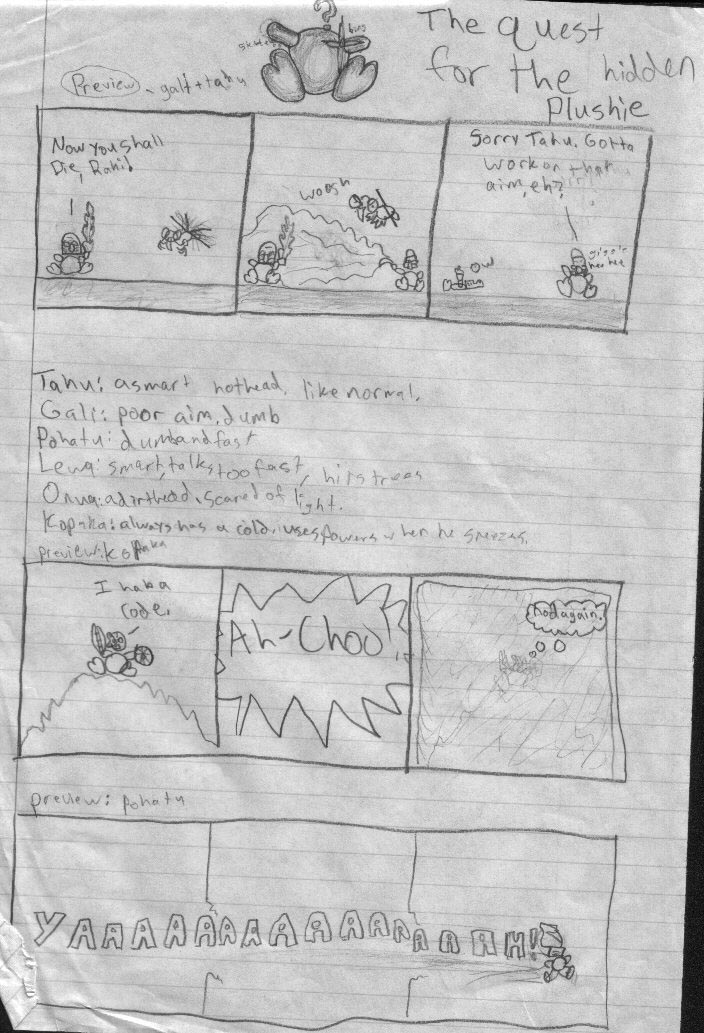 The quest
for the hidden
Plushie
Preview
gali + tahu
Now you shall
Die, Rahi!
woosh
Sorry Tahu. Gotta
work on that
aim, eh?
ow
giggle
hee hee
Tahu: a smart hothead, like normal.
Gali: poor aim, dumb
Pohatu: dumb and fast
Lewa: smart, talks too fast, hits trees
Onua: a dirthead, scared of light.
Kopaka: always has a cold, uses powers when he sneezes.
preview: kopaka
I haba
code.
Ah-Choo
nod again.
preview: pohatu
YAAAAAAAAAAAAAAAAH!